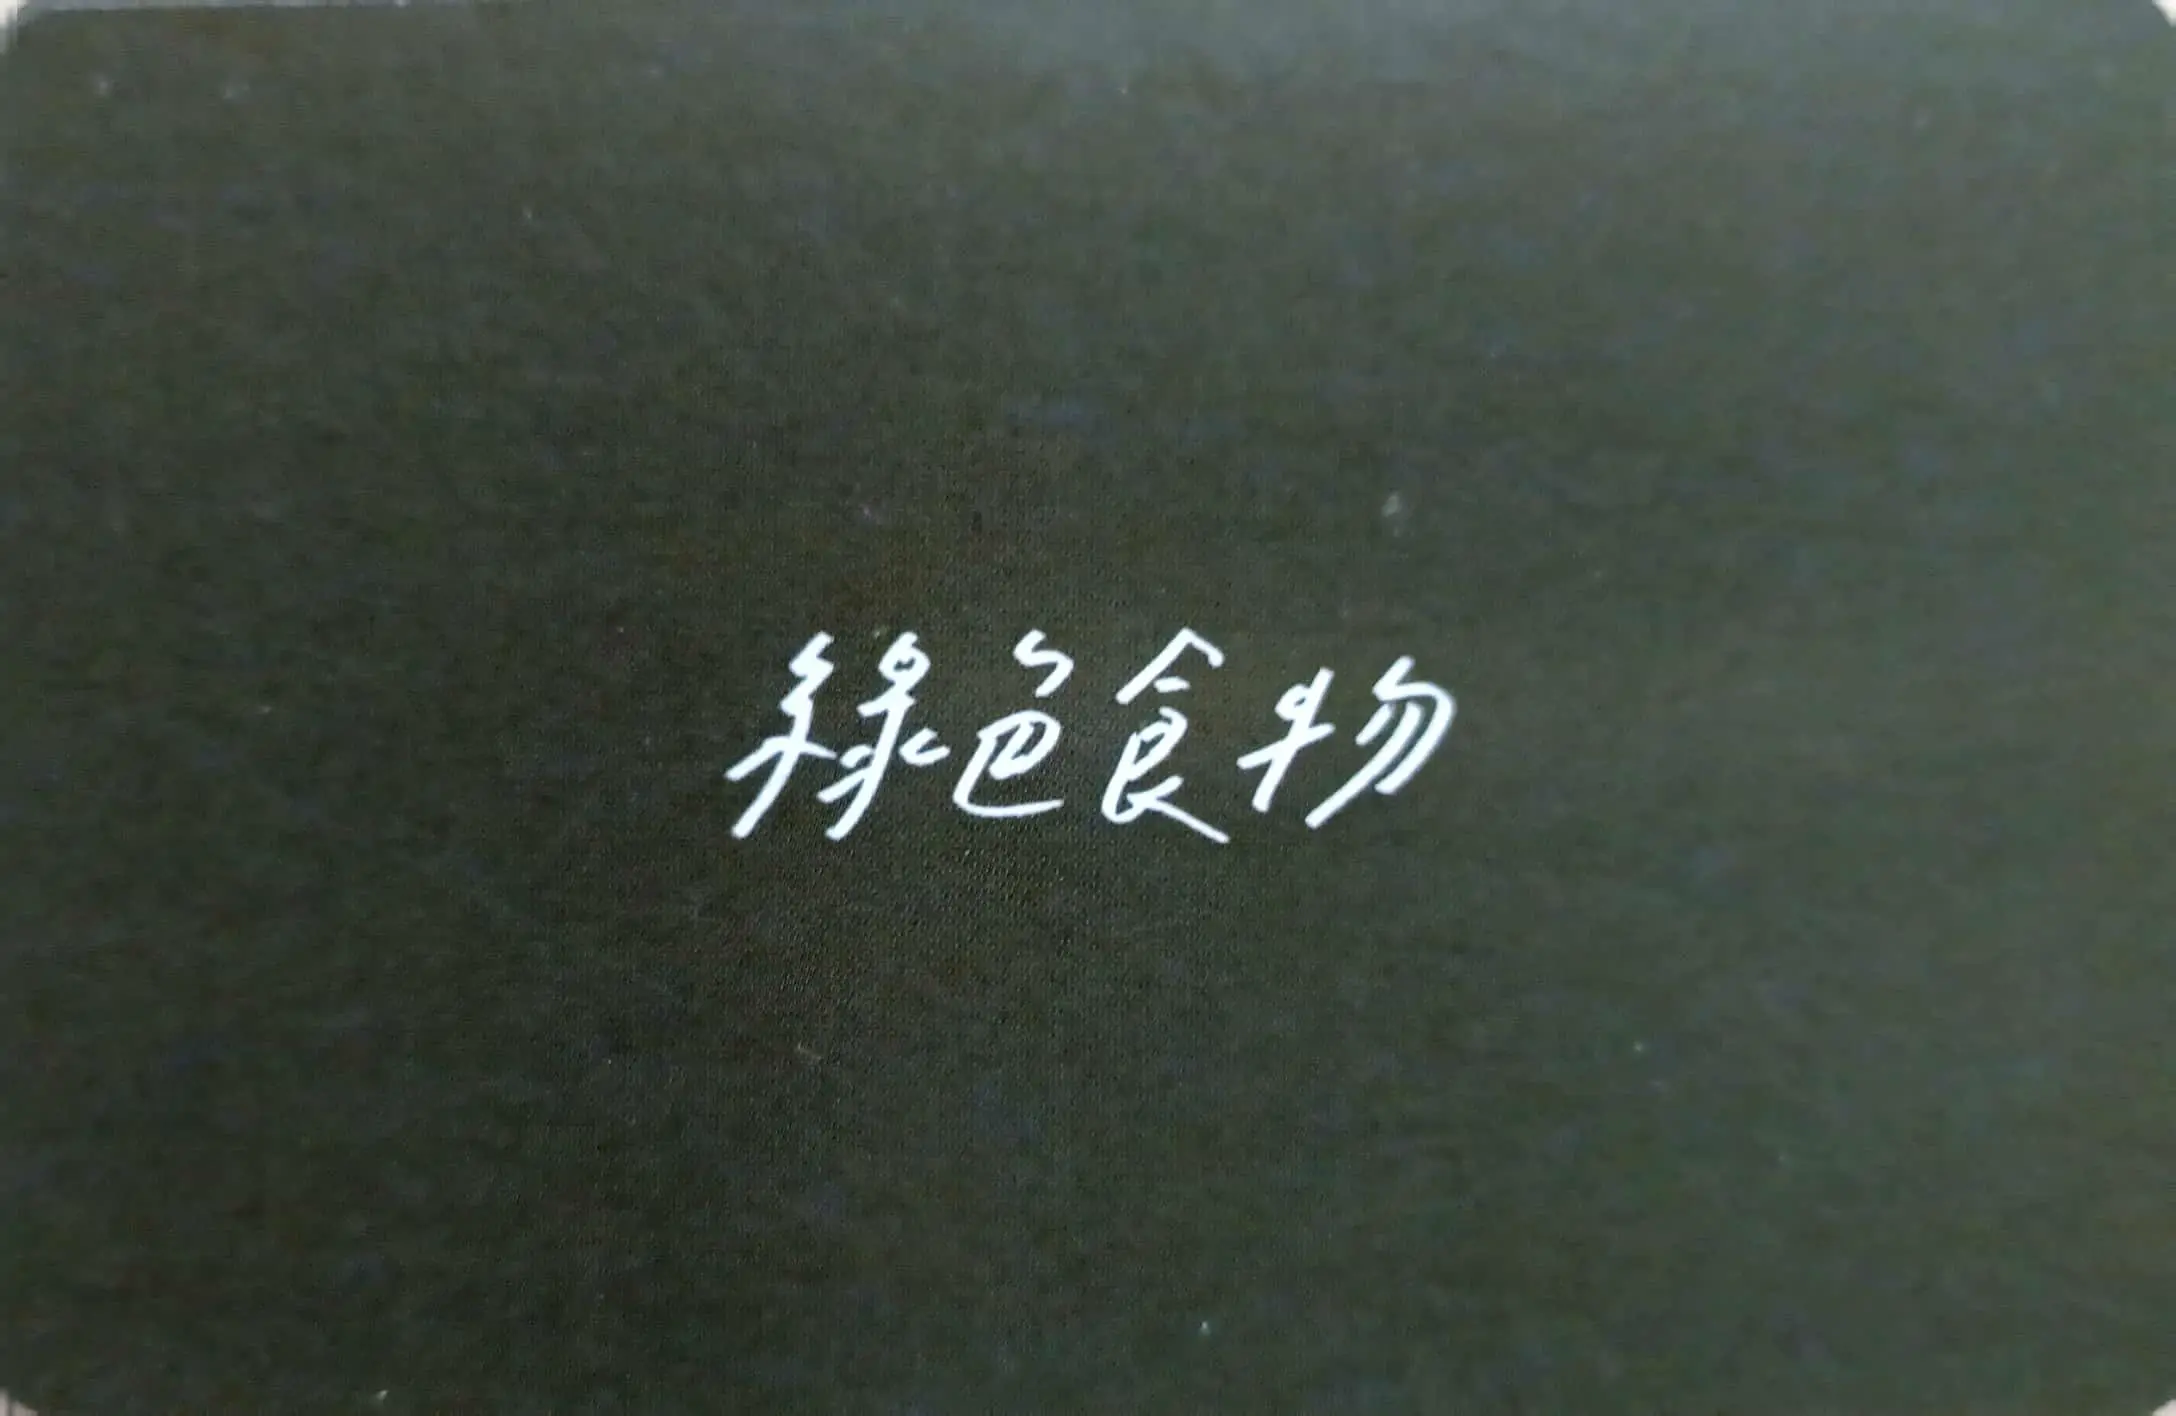 綠色食物